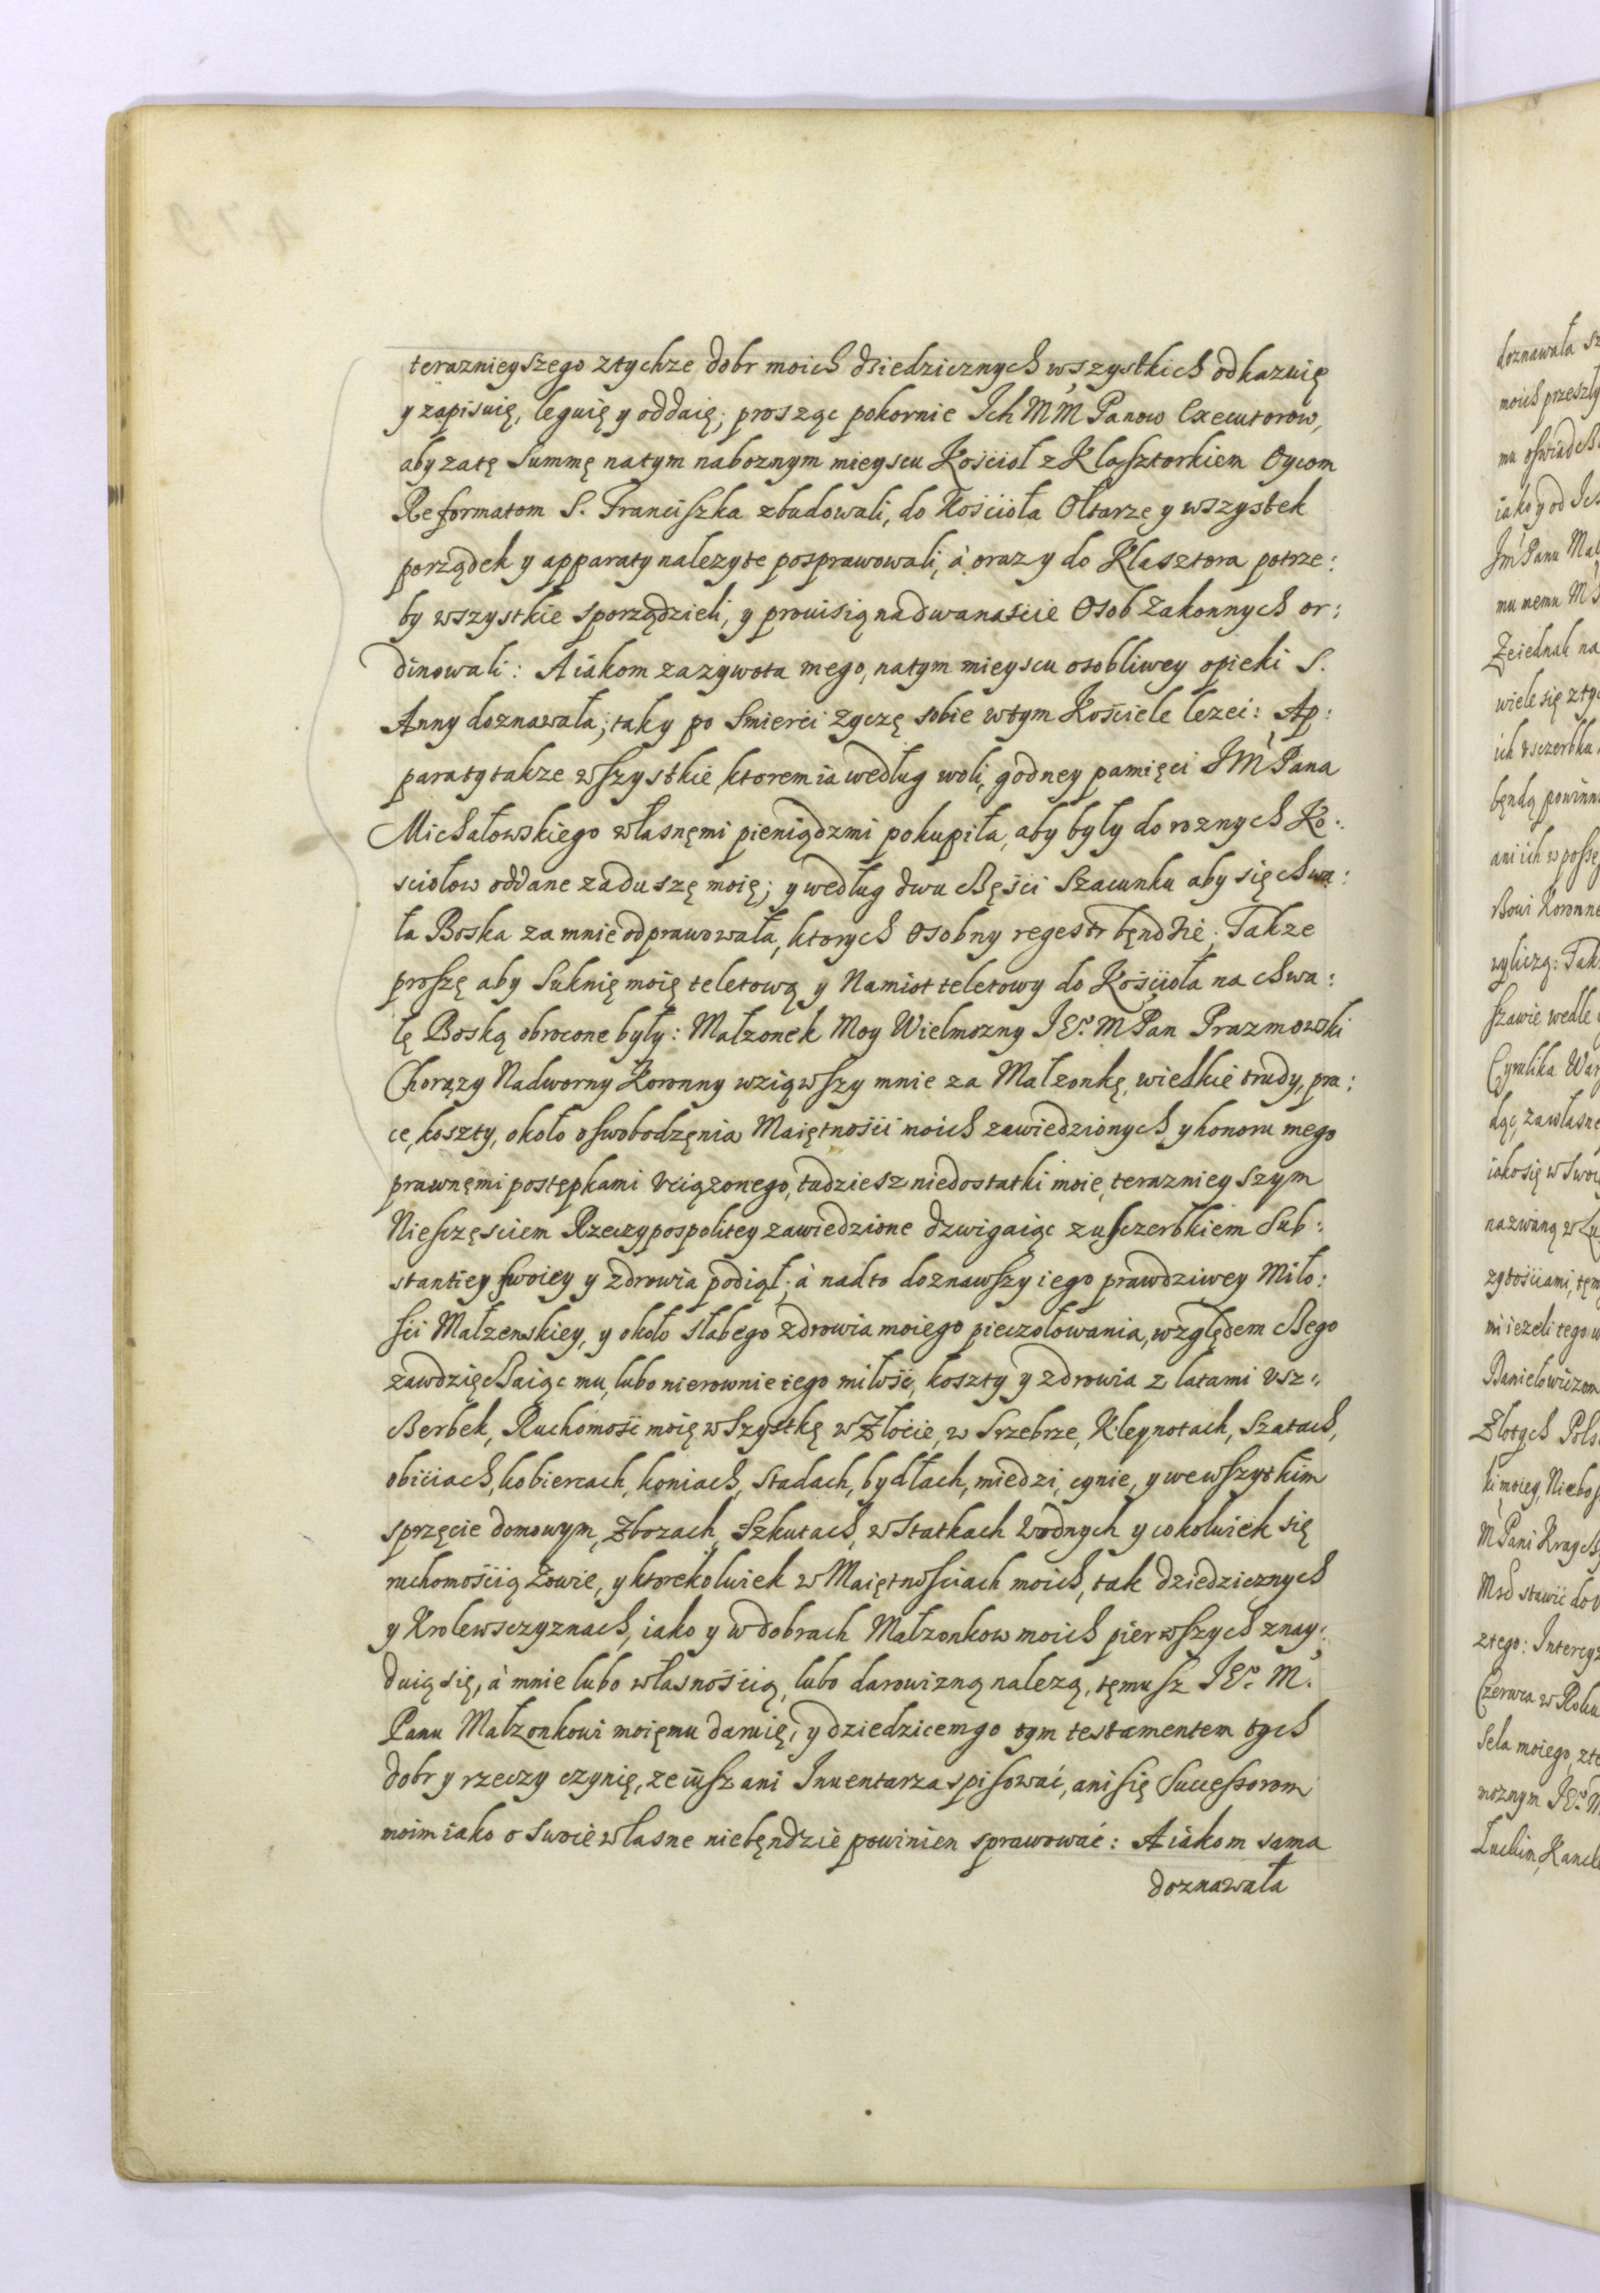 terazniey szego ztychze dobr moich dziedzicznych wszystkich odkazuię
y zapisuię, leguię y oddaię; prosząc pokornie Ich MM Panow Executorow,
aby zatę Summę natym naboznym mieyscu Kościoł z Klasztorkiem Oycom
Reformatom S. Franciszka zbudowali, do Kościoła Ołtarze y wszystek
porządek y apparaty nalezyte posprawowali, à oraz y do Klasztora potrze:
by wszystkie sporządzieli, y prouisią na dwanaście Osob Zakonnych or:
dinowali: A iakom zazywota mego, natym mieyscu osobliwey opieki S.
Anny doznawała; tak y po Smierći zyczę sobie wtym Kościele lezeć: Ap:
paraty takze wszystkie, ktorem ia według woli, godney pamięci JM Pana
Michałowskiego własnęmi pieniądzmi pokupiła, aby były do roznych Ko:
sciołow oddane za duszę moię; y według dwu chęści Szacunku aby się chwa:
ła Boska zamnie odprawowała, ktorych osobny regestr będzie; Takze
proszę aby Suknię moię teletową y Namiot teletowy do Kościoła na chwa:
łę Boską obrocone były: Małzonek Moy Wielmozny JEo. M Pan Prazmowski
Chorązy Nadworny Koronny wziąwszy mnie za Małzonkę, wielkie trudy, pra:
ce, koszty, około oswobodzęnia Maiętności moich zawiedzionych y honoru mego
prawnęmi postępkami vciązonego, tudziesz niedostatki moie, teraznieyszym
Niesczęściem Rzeczypospolitey zawiedzione dzwigaiąc z usczerbkiem Sub:
stantiey swoiey y zdrowia podiął; à nadto doznawszy iego prawdziwey Miło:
ści Małzenskiey, y około słabego zdrowia moiego pieczołowania, względem chego
zawdzięchaiąc mu, lubo nierownie iego miłość, koszty y zdrowia z latami vsz:
cherbek, Ruchomość moię wszystkę w Złocie, w Srzebrze, Kleynotach, Szatach,
obiciach, kobiercach, koniach, Stadach, bydłach, miedzi, cynie, y we wszytkim
sprzęcie domowym, Zbozach, Szkutach, w Statkach Vodnych y cokolwiek się
ruchomością Zowie, y ktorekolwiek w Maiętnościach moich, tak dziedzicznych
y Krolewsczyznach, iako y w dobrach Małzonkow moich pierwszych znay:
duią się, à mnie lubo własnością, lubo darowizną nalezą, tęmusz JEo. M.
Panu Małzonkowi moięmu daruię, y dziedzicem go tym testamentem tych
dobr y rzeczy czynię, ze iusz ani Inuentarza spisować, ani się Successorom
moim iako o swoie własne niebęndzie powinien sprawować: A iakom sama
doznawała